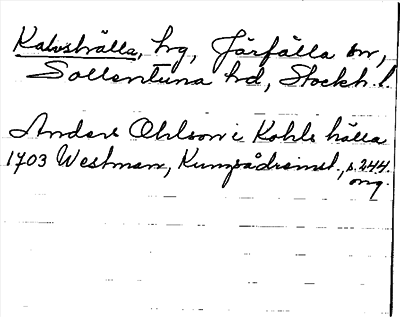 Kalvshälla, hg, Järfälla sn,
Sollentuna hd, Stockh. l.
Anders Ohlson i Kohls hälla
1703 Westman, Kungsådreinst., s. 244.
omg.